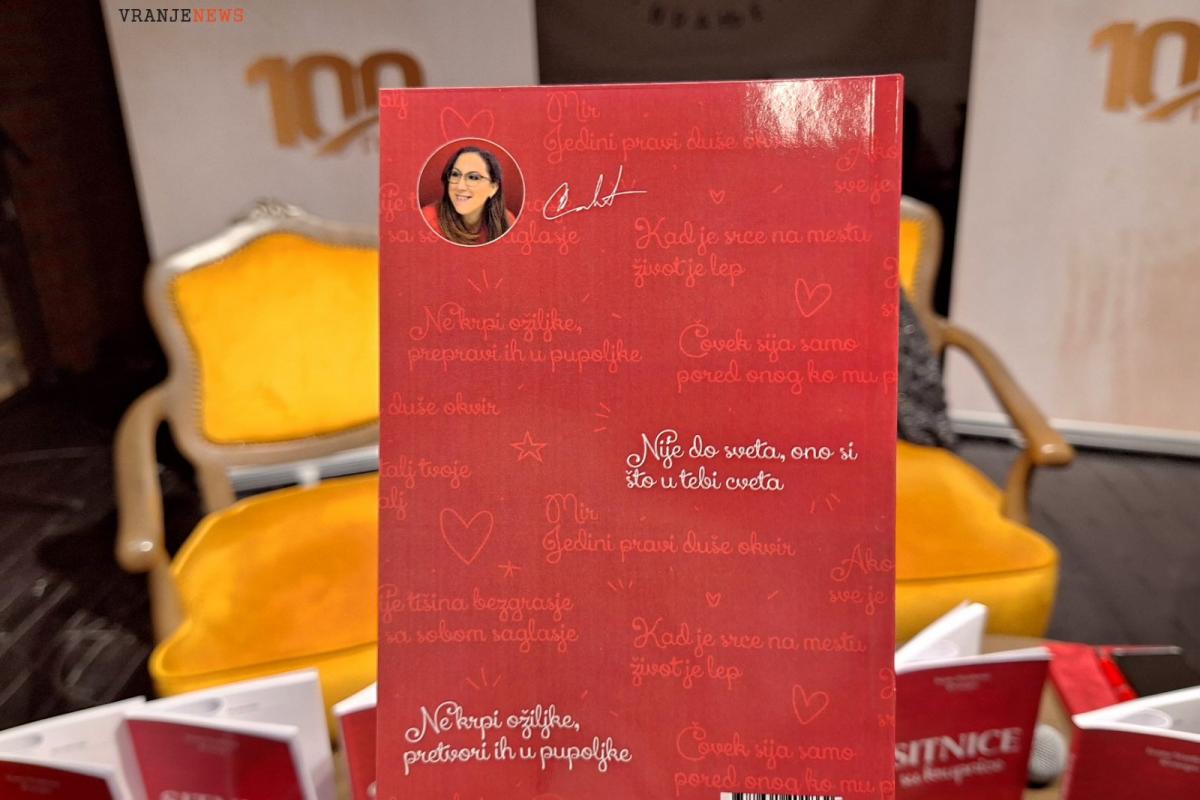 VRANJENEWS
100
100
alj
Mir
Jedini pravi duše okvir
Ako
sve je
saglasje
Kad je srce na mestu
život je lep
Ne krpi ožiljke,
prepravi ih u pupoljke
Čovek sija samo
pored onog ko mu p
duše okvir
Nije do sveta, ono si
što u tebi cveta
talj tvoje
alj
Mir
Jedini pravi duše okvir
Ako
sve je
ije tišina bezgrasje
sa sobom saglasje
Kad je srce na mestu
život je lep
Ne krpi ožiljke,
pretvori ih u pupoljke
Čovek sija samo
pored onog ko mu p
SITNICE